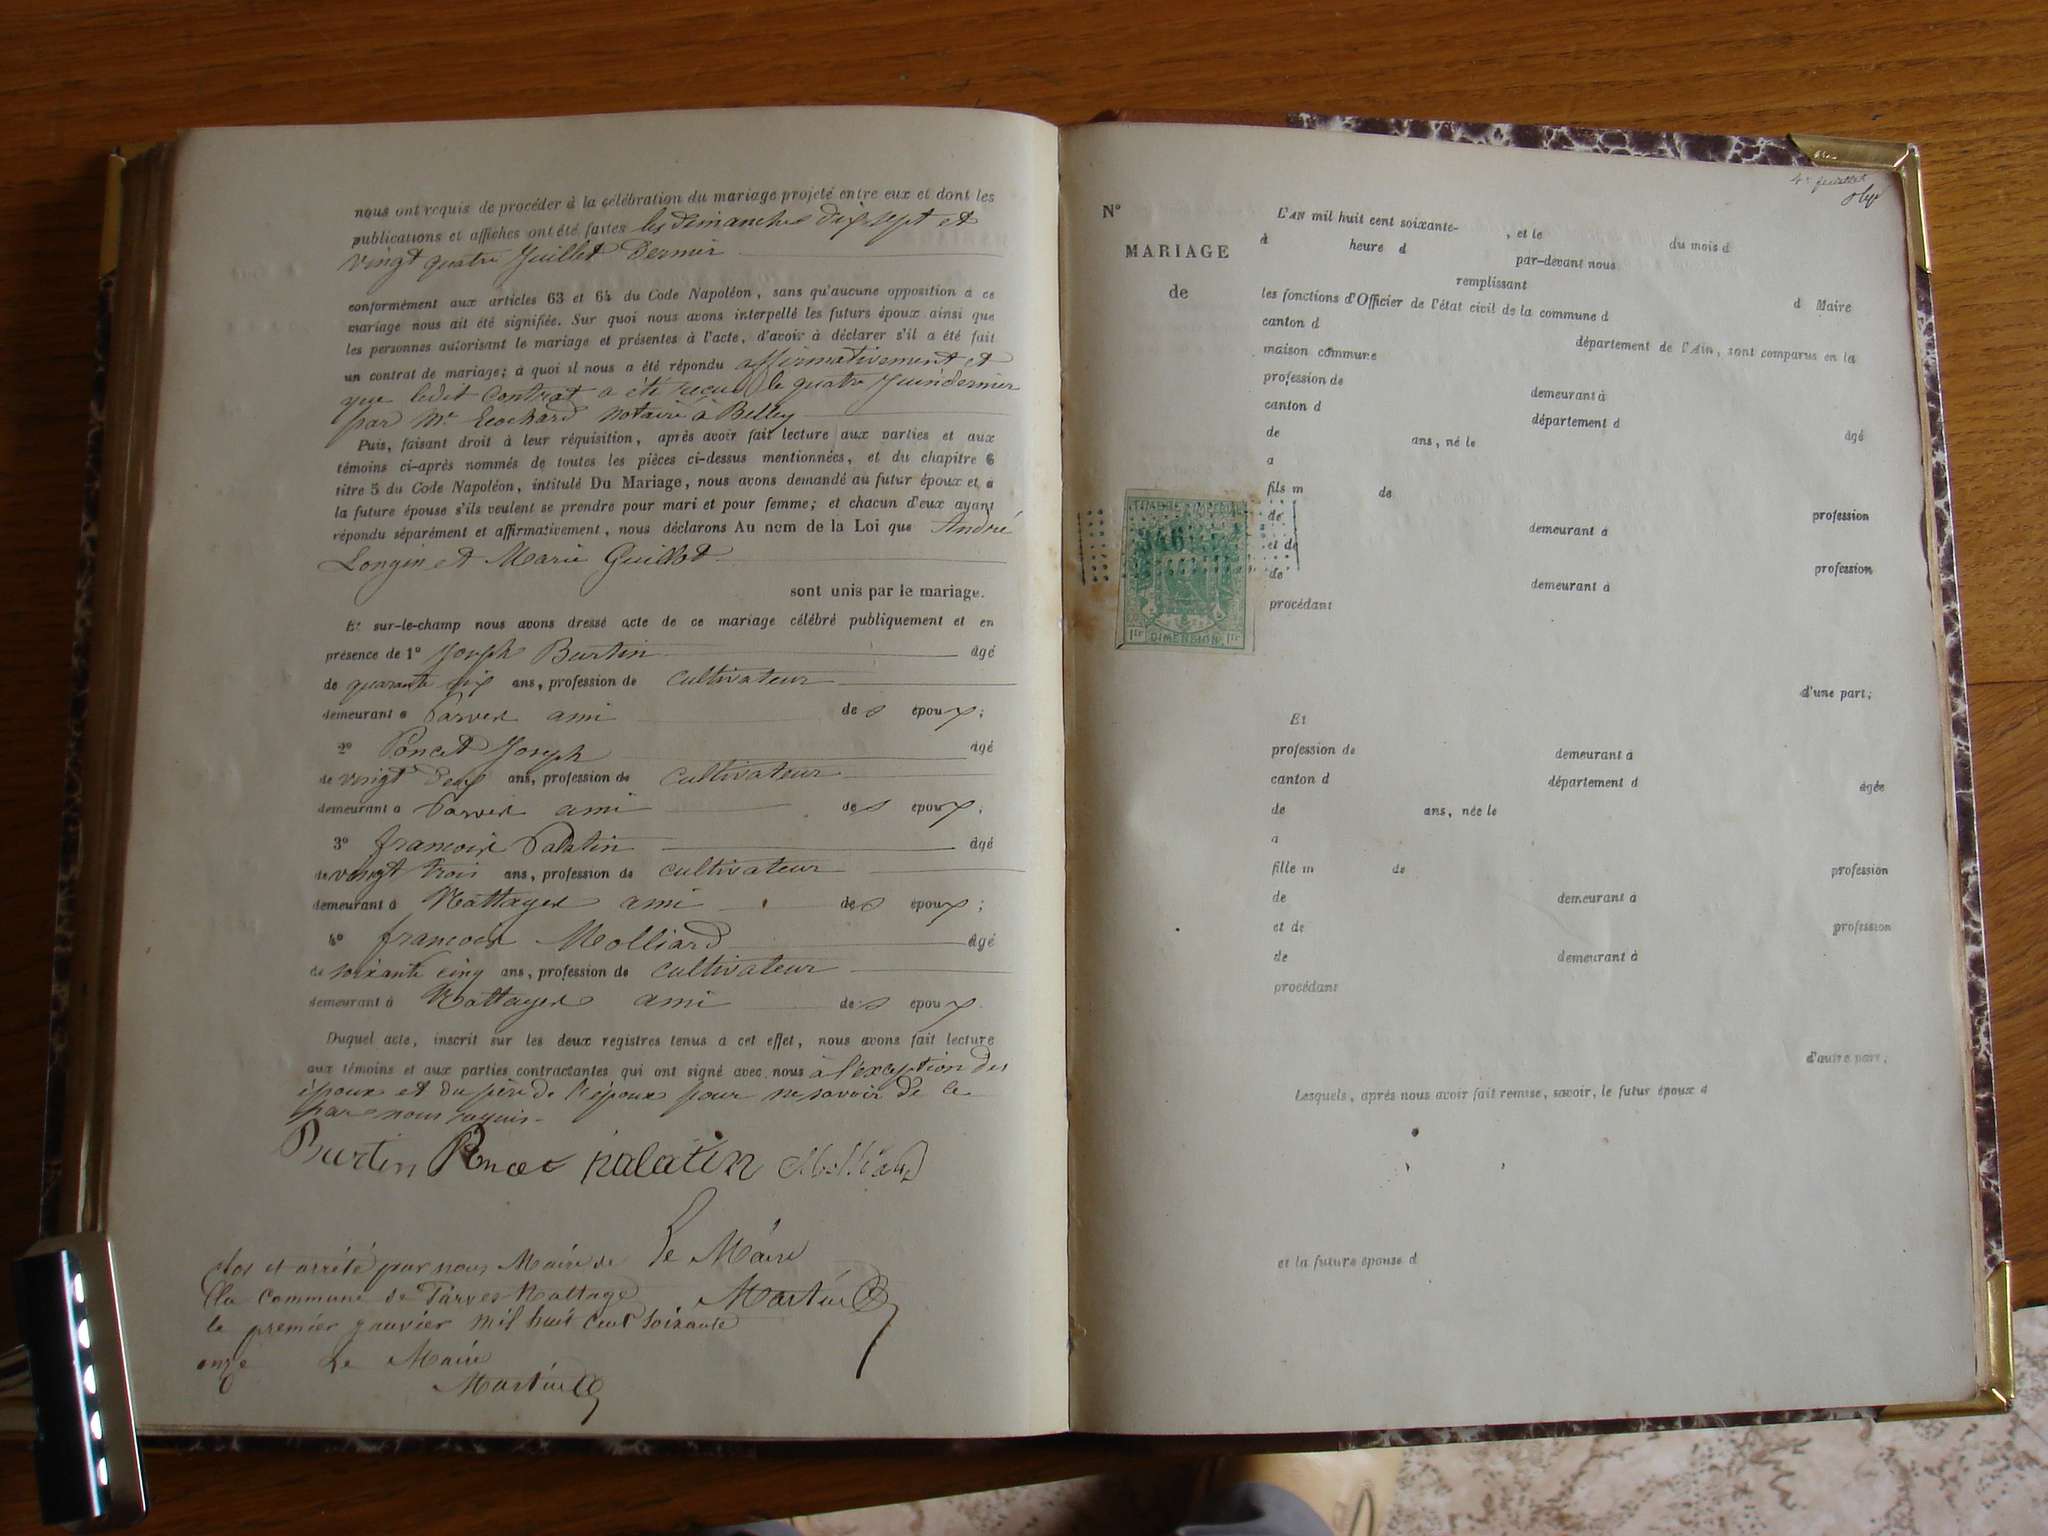 nous ont requis de procéder à la célébration du mariage projeté entre eux et dont les
publications et affiches ont été faites les dimanches dix sept et
vingt quatre Juillet Dernier
conformément aux articles 63 et 64 du Code Napoléon, sans qu'aucune opposition à ce
mariage nous ait été signifiée. Sur quoi nous avons interpellé les futurs époux ainsi que
les personnes autorisant le mariage et présentes à l'acte, d'avoir à déclarer s'il a été fait
un contrat de mariage; à quoi il nous a été répondu affirmativement et
que ledit Contrat a été reçu le quatre Juin dernier
par Mr notaire à Belley
Puis, faisant droit à leur réquisition, après avoir fait lecture aux parties et aux
témoins ci-après nommés de toutes les pièces ci-dessus mentionnées, et du chapitre 6
titre 5 du Code Napoléon, intitulé Du Mariage, nous avons demandé au futur époux et à
la future épouse s'ils veulent se prendre pour mari et pour femme; et chacun d'eux ayant
répondu séparément et affirmativement, nous déclarons Au nom de la Loi que André
Longin et Marie Guillot
sont unis par le mariage.
Et sur-le-champ nous avons dressé acte de ce mariage célébré publiquement et en
présence de 1° Joseph Burtin âgé
de quarante six ans, profession de cultivateur
demeurant à Parves ami des époux;
2° Poncet Joseph âgé
de vingt deux ans, profession de cultivateur
demeurant à Parves ami des époux;
3° françois Palatin âgé
de vingt trois ans, profession de cultivateur
demeurant à Nattages ami des époux;
4° françois Molliard âgé
de soixante cinq ans, profession de cultivateur
demeurant à Nattages ami des époux.
Duquel acte, inscrit sur les deux registres tenus à cet effet, nous avons fait lecture
aux témoins et aux parties contractantes qui ont signé avec nous à l'exception des
époux et du père de l'époux pour ne savoir de ce
par nous requis.
Burtin Poncet palatin Molliard
Le Maire
Martin
clos et arrêté par nous Maire de
la commune de Parves Nattage
le premier janvier mil huit cent soixante
onze Le Maire
Martin
4e feuillet
N°
MARIAGE
de
L'AN mil huit cent soixante- , et le du mois d
à heure d par-devant nous
remplissant
les fonctions d'Officier de l'état civil de la commune d d Maire
canton d département de l'Ain, sont comparus en la
maison commune
profession de demeurant à
canton d département d
de ans, né le âgé
a
fils m de
de demeurant à profession
et de
de demeurant à profession
procédant
346
1fr DIMENSION 1fr
d'une part;
Et
profession de demeurant à
canton d département d
de ans, née le âgée
a
fille m de profession
de demeurant à
et de profession
de demeurant à
procédant
d'autre part.
Lesquels, après nous avoir fait remise, savoir, le futur époux d
et la future épouse d